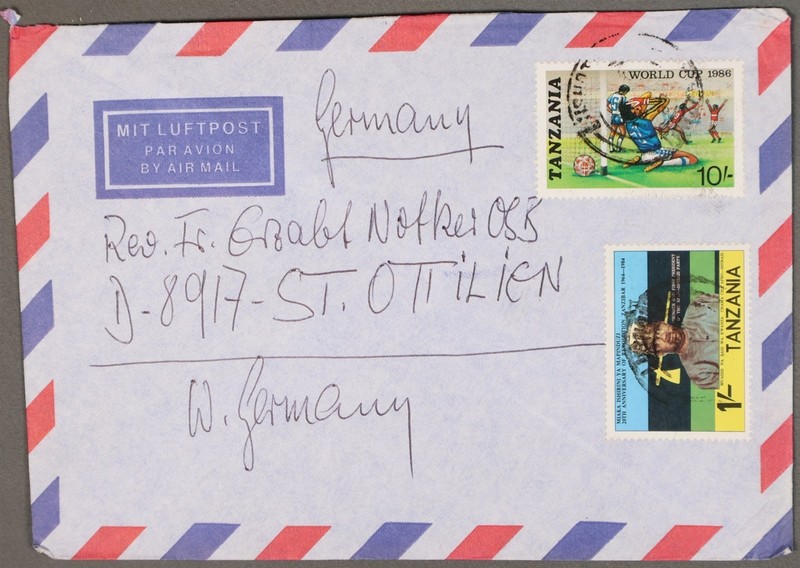 MIT LUFTPOST
PAR AVION
BY AIR MAIL
Germany
WORLD CUP 1986
TANZANIA
10/-
Rev. Fr. Erzabt Notker OSB
D-8917-ST. OTTILIEN
W. Germany
MIAKA ISHIRINI YA MAPINDUZI
20TH ANNIVERSARY OF REVOLUTION ZANZIBAR 1964-1984
TANZANIA
1/-